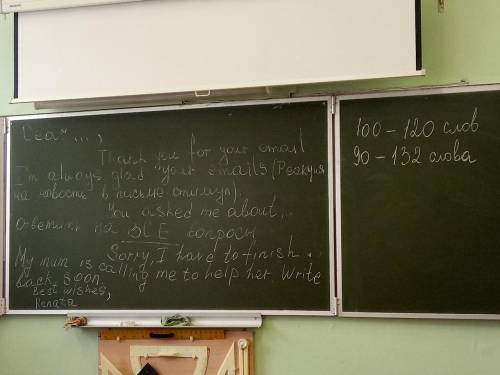 Dear ...,
Thank you for your email
I'm always glad your emails (Реакция
на новость в письме-стимуле).
You asked me about...
Ответить на ВСЕ вопросы
Sorry, I have to finish...
My mum is calling me to help her. Write
back soon.
Best wishes,
Renata
100 – 120 слов
90 – 132 слова